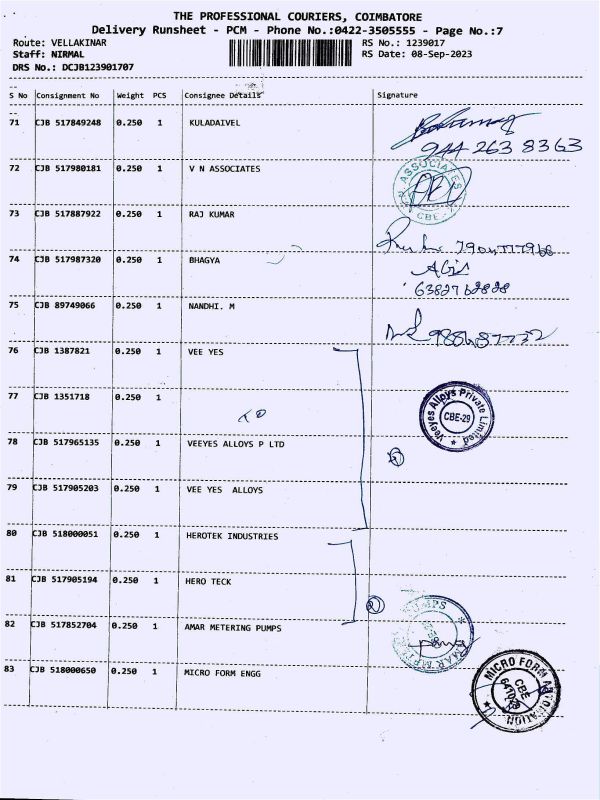 THE PROFESSIONAL COURIERS, COIMBATORE
Delivery Runsheet - PCM - Phone No.:0422-3505555 - Page No.:7
Route: VELLAKINAR RS No.: 1239017
Staff: NIRMAL RS Date: 08-Sep-2023
DRS No.: DCJB123901707
S No Consignment No Weight PCS Consignee Details Signature
71 CJB 517849248 0.250 1 KULADAIVEL
944 263 8363
72 CJB 517980181 0.250 1 V N ASSOCIATES
V.N. ASSOCIATES
CBE
73 CJB 517887922 0.250 1 RAJ KUMAR
74 CJB 517987320 0.250 1 BHAGYA
6382762828
75 CJB 89749066 0.250 1 NANDHI. M
76 CJB 1387821 0.250 1 VEE YES
77 CJB 1351718 0.250 1
Veeyes Alloys Private Limited
CBE-29
78 CJB 517965135 0.250 1 VEEYES ALLOYS P LTD
79 CJB 517905203 0.250 1 VEE YES ALLOYS
80 CJB 518000051 0.250 1 HEROTEK INDUSTRIES
81 CJB 517905194 0.250 1 HERO TECK
82 CJB 517852704 0.250 1 AMAR METERING PUMPS
83 CJB 518000650 0.250 1 MICRO FORM ENGG
MICRO FORM AUTOMATION
CBE